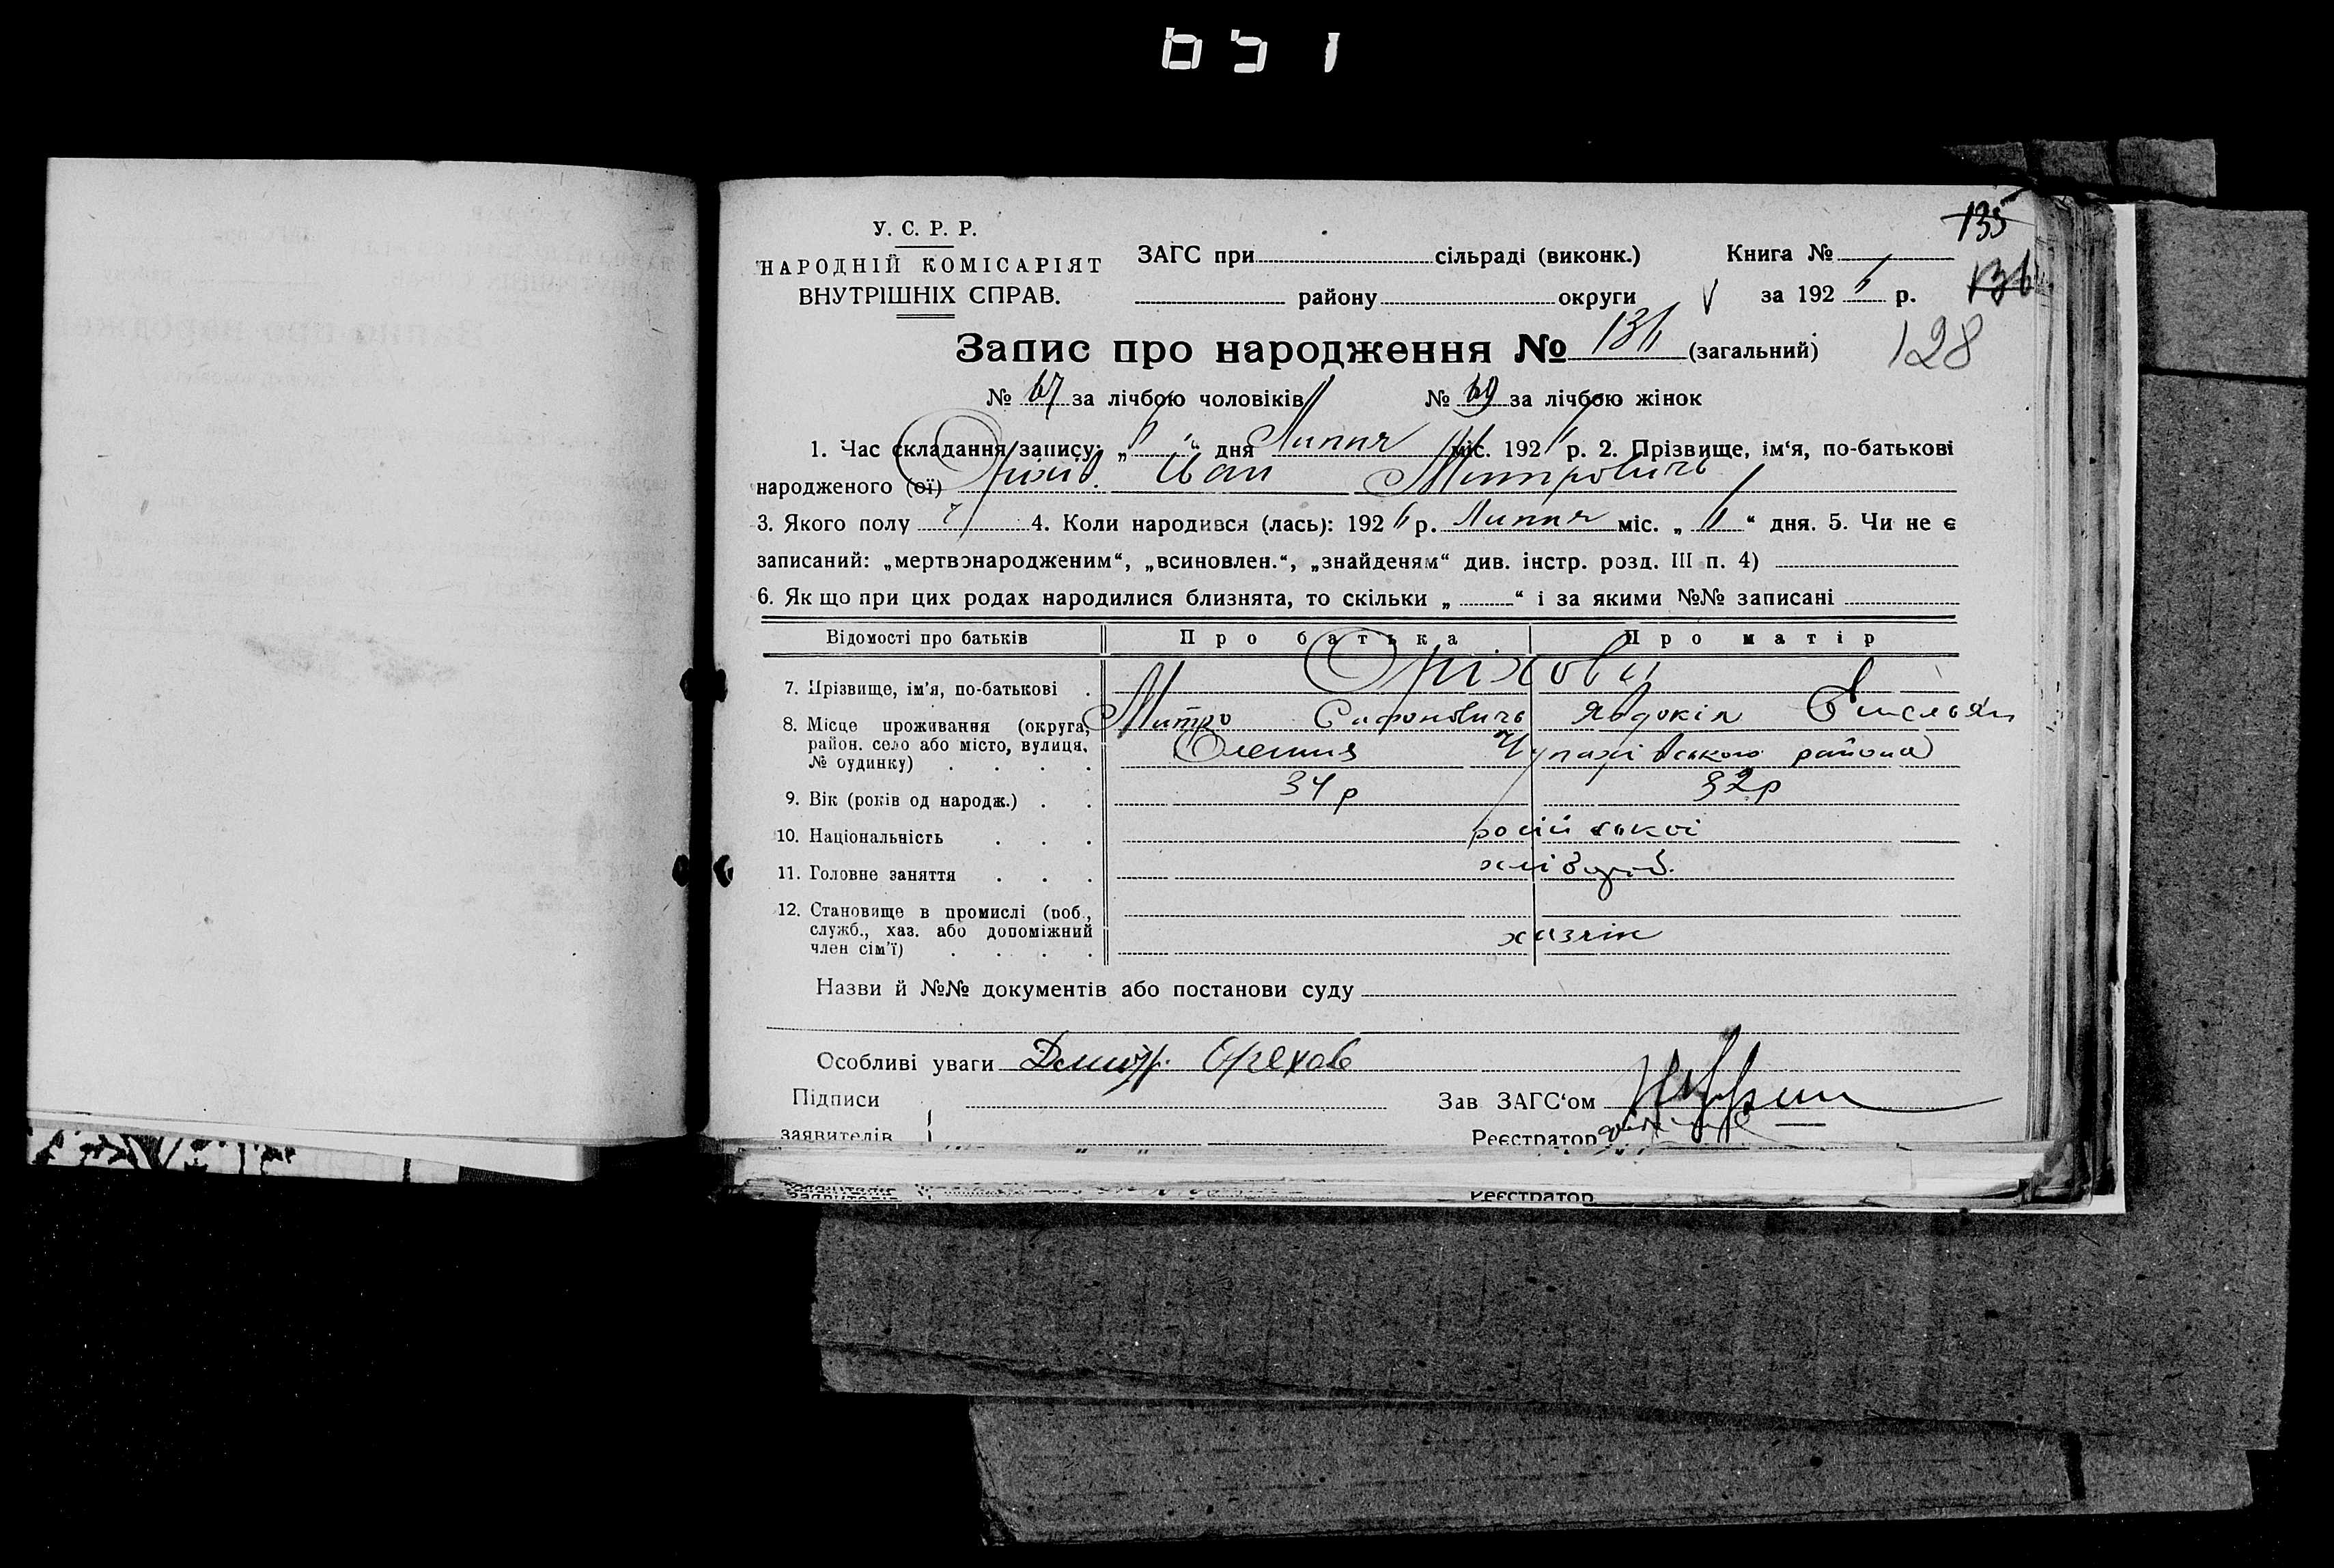 У. С. Р. Р.
НАРОДНІЙ КОМІСАРІЯТ
ВНУТРІШНІХ СПРАВ.
ЗАГС при сільраді (виконк.)
району округи
Книга №
135
за 1926 р.
136
Запис про народження № 136 (загальний)
128
№ 67 за лічбою чоловіків № 69 за лічбою жінок
1. Час складання запису: „ “ дня Липня міс. 1926 р. 2. Прізвище, ім‘я, по-батькові
народженого (ої) Оріхів. Иван Митровичь
3. Якого полу ч 4. Коли народився (лась): 1926 р. Липня міс. „ “ дня. 5. Чи не є
записаний: „мертвонародженим“, „всиновлен.“, „знайденям“ див. інстр. розд. III п. 4)
6. Як що при цих родах народилися близнята, то скільки „ “ і за якими №№ записані
Відомості про батьків Про батька Про матір
7. Прізвище, ім’я, по-батькові Оріхови
Митро Сафоновичь Явдокія Омельян
8. Місце проживання (округа, район. село або місто, вулиця, № будинку) Олешня Чупахівського района
9. Вік (років од народж.) 34 р 32 р
10. Національність російської
11. Головне заняття хлібороб.
12. Становище в промислі (роб., служб., хаз. або допоміжний член сім’ї) хазяін
Назви й №№ документів або постанови суду
Особливі уваги Орехов
Підписи Зав ЗАГС‘ом
заявителів Реєстратор
Реєстратор